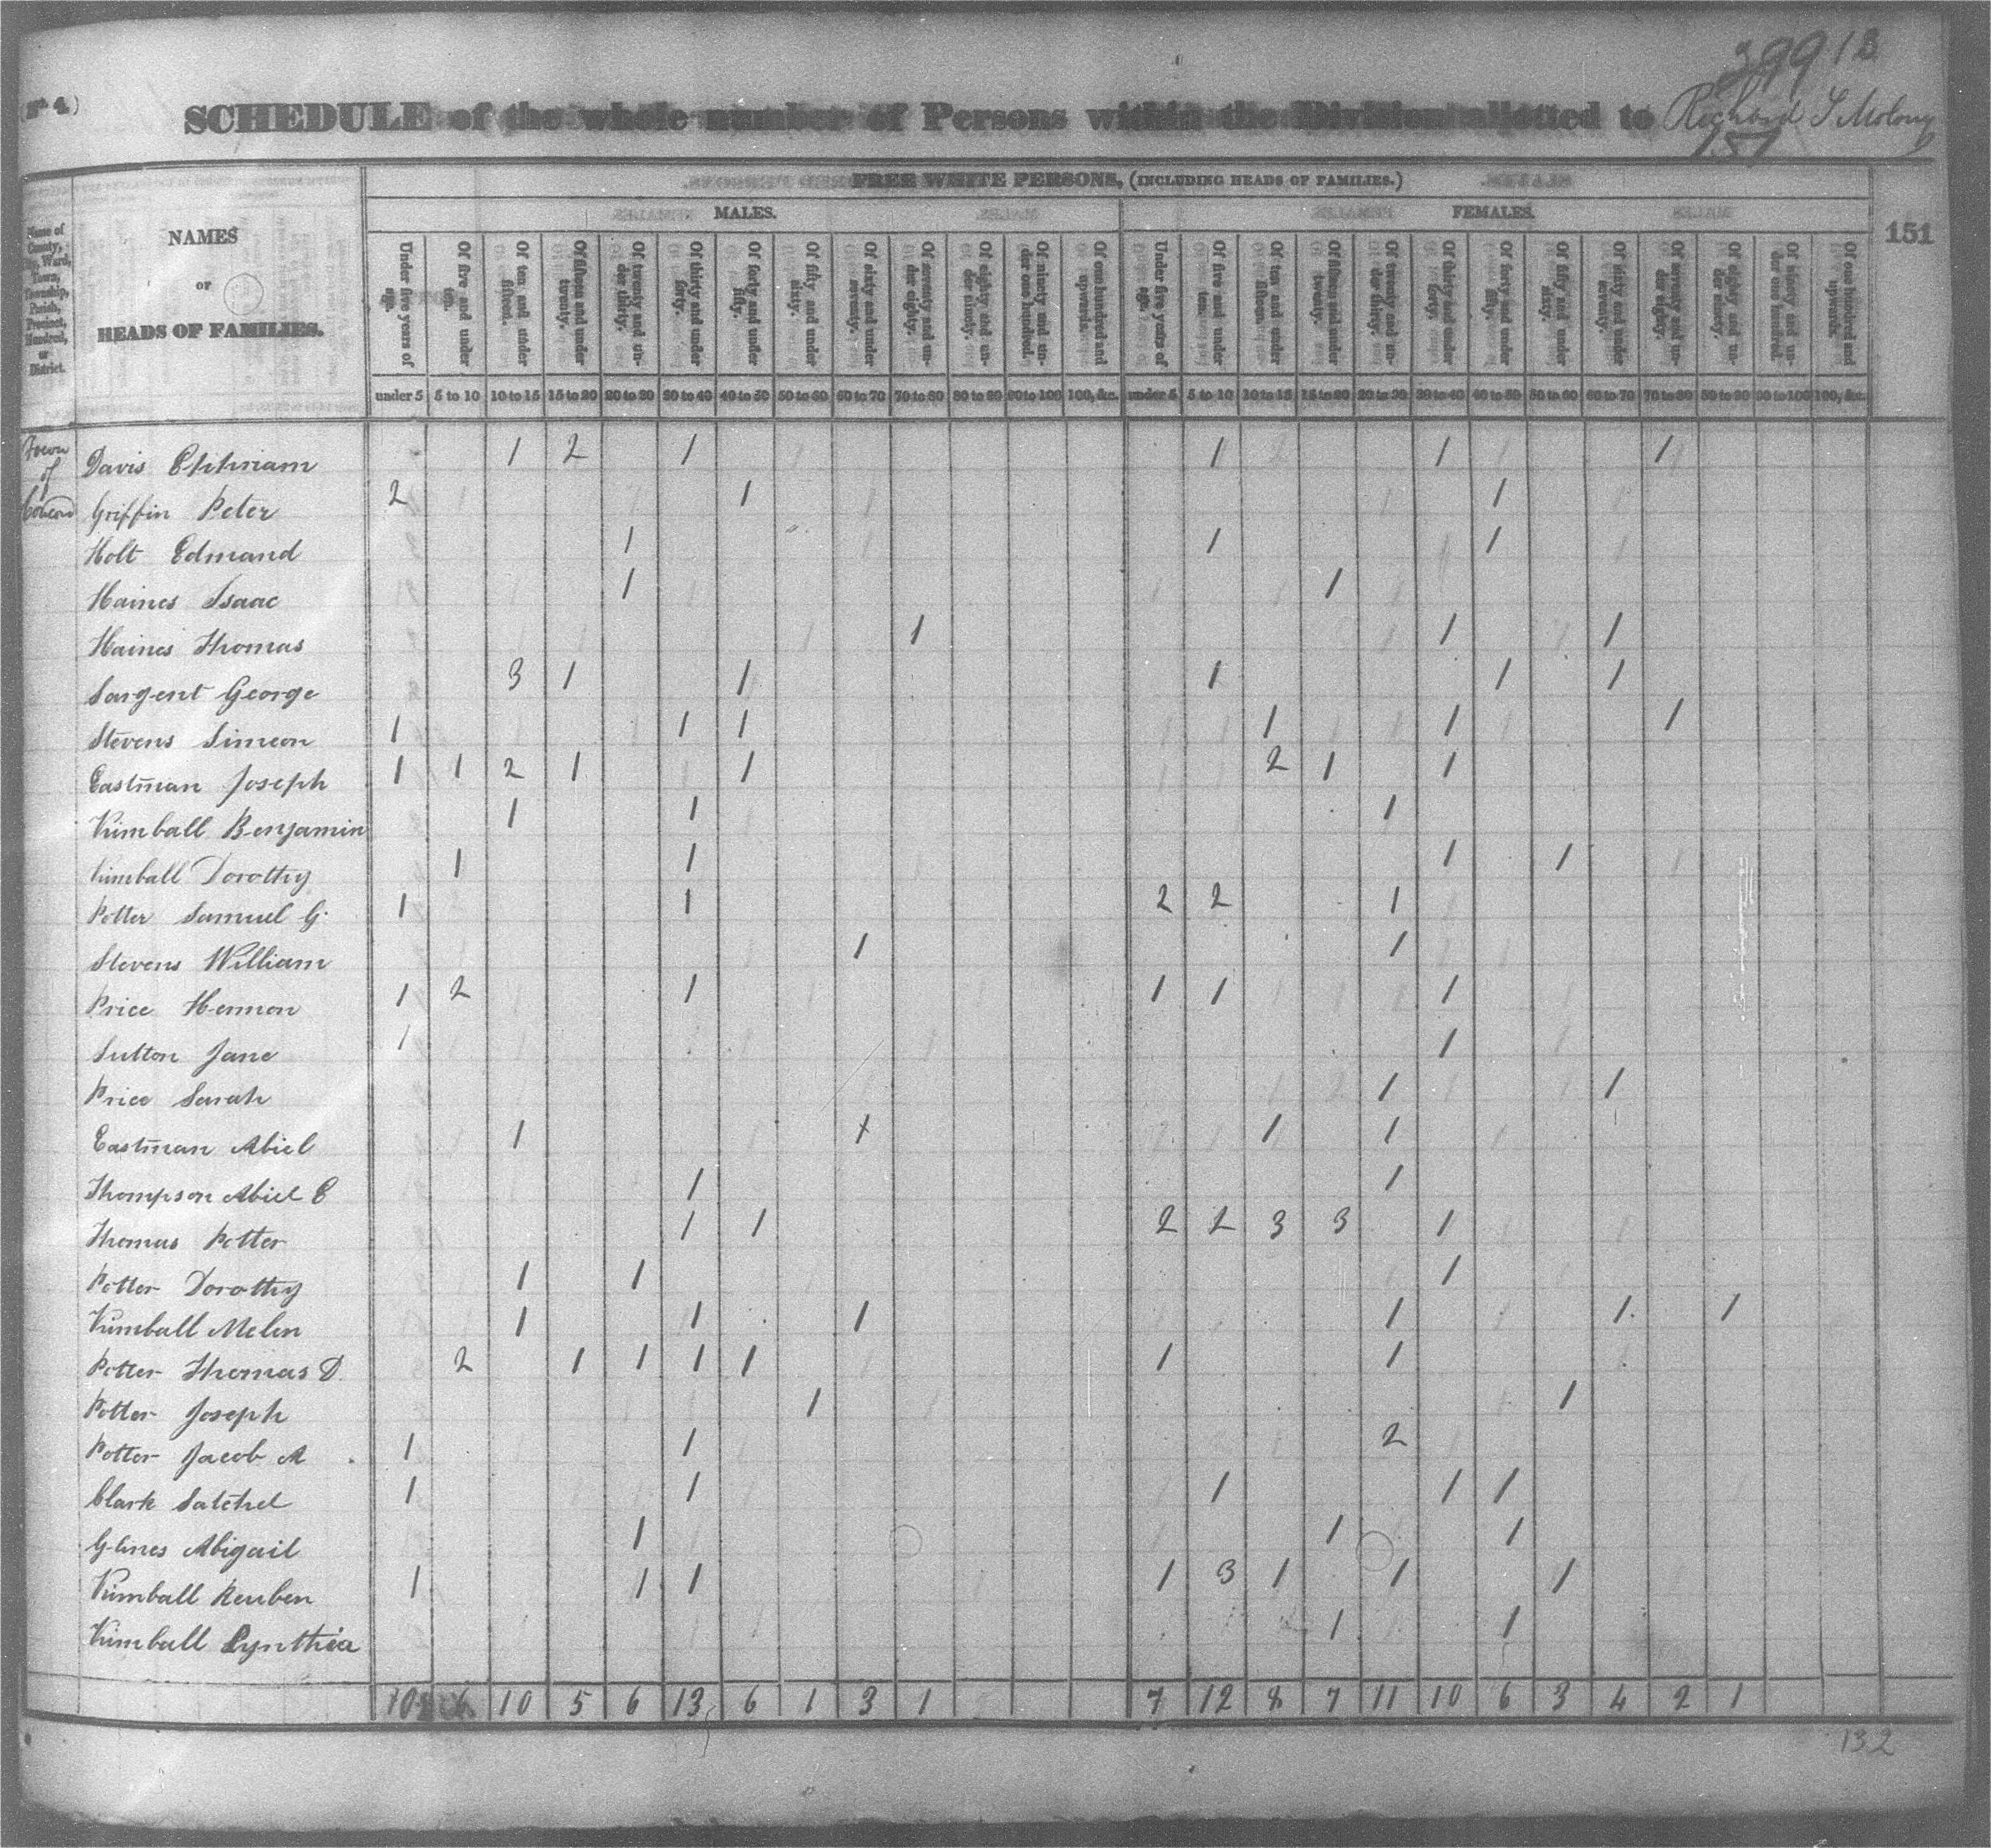 399 13
(No. 4.)
SCHEDULE of the whole number of Persons within the Division allotted to Richard S Molony
151
FREE WHITE PERSONS, (INCLUDING HEADS OF FAMILIES.)
MALES. FEMALES.
151
Name of County, Ward, Town, Township, Parish, Precinct, Hundred, or District.
NAMES
OF
HEADS OF FAMILIES.
Under five years of age. Of five and under ten. Of ten and under fifteen. Of fifteen and under twenty. Of twenty and under thirty. Of thirty and under forty. Of forty and under fifty. Of fifty and under sixty. Of sixty and under seventy. Of seventy and under eighty. Of eighty and under ninety. Of ninety and under one hundred. Of one hundred and upwards. Under five years of age. Of five and under ten. Of ten and under fifteen. Of fifteen and under twenty. Of twenty and under thirty. Of thirty and under forty. Of forty and under fifty. Of fifty and under sixty. Of sixty and under seventy. Of seventy and under eighty. Of eighty and under ninety. Of ninety and under one hundred. Of one hundred and upwards.
under 5 5 to 10 10 to 15 15 to 20 20 to 30 30 to 40 40 to 50 50 to 60 60 to 70 70 to 80 80 to 90 90 to 100 100, &c. under 5 5 to 10 10 to 15 15 to 20 20 to 30 30 to 40 40 to 50 50 to 60 60 to 70 70 to 80 80 to 90 90 to 100 100, &c.
Town of Concord
Davis Ephriam 1 2 1 1 1 1
Griffin Peter 2 1 1
Holt Edmand 1 1 1
Haines Isaac 1 1
Haines Thomas 1 1 1
Sargent George 3 1 1 1 1 1
Stevens Simeon 1 1 1 1 1 1
Eastman Joseph 1 1 2 1 1 2 1 1
Kimball Benjamin 1 1 1
Kimball Dorothy 1 1 1 1
Potter Samuel G. 1 1 2 2 1
Stevens William 1 1
Price Hermon 1 2 1 1 1 1
Sutton Jane 1 1
Price Sarah 1 1
Eastman Abiel 1 1 1 1
Thompson Abiel C 1 1
Thomas Potter 1 1 2 2 3 3 1
Potter Dorothy 1 1 1
Kimball Melen 1 1 1 1 1 1
Potter Thomas D. 2 1 1 1 1 1 1
Potter Joseph 1 1
Potter Jacob A 1 1 2
Clark Satchel 1 1 1 1 1
Glines Abigail 1 1 1
Kimball Reuben 1 1 1 1 3 1 1 1
Kimball Cynthia 1 1
10 6 10 5 6 13 6 1 3 1 7 12 8 7 11 10 6 3 4 2 1
132